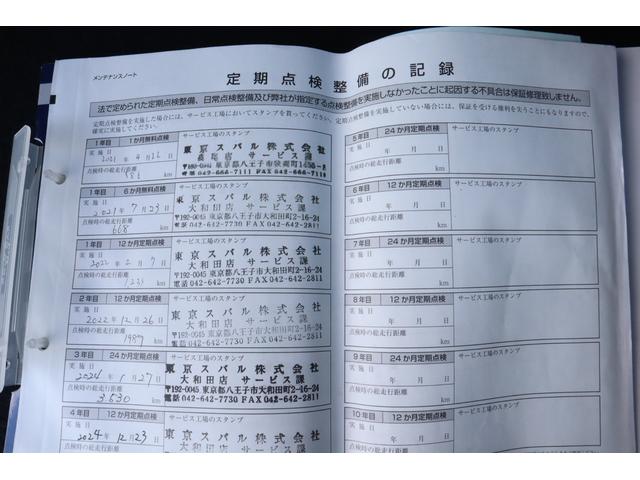 メンテナンスノート
定期点検整備の記録
法で定められた定期点検整備、日常点検整備及び弊社が指定する点検整備を実施しなかったことに起因する不具合は保証修理致しません。
定期点検整備を実施した場合には、サービス工場においてスタンプを貰ってください。定期点検整備を実施していない場合には、保証を受ける権利を失うことにもなりますので、
確実に実施してください。
1年目 1か月無料点検 サービス工場のスタンプ
実施日 2021年4月26日
点検時の総走行距離
181 km
東京スバル株式会社
サービス課
042-666-7111 FAX 042-666-7119
1年目 6か月無料点検 サービス工場のスタンプ
実施日
2021年7月23日
点検時の総走行距離
668 km
東京スバル株式会社
大和田店 サービス課
〒192-0045 東京都八王子市大和田町2-16-24
電話 042-642-7730 FAX 042-642-2811
1年目 12か月定期点検 サービス工場のスタンプ
実施日
点検時の総走行距離
1233 km
東京スバル株式会社
大和田店 サービス課
〒192-0045 東京都八王子市大和田町2-16-24
電話 042-642-7730 FAX 042-642-2811
2年目 12か月定期点検 サービス工場のスタンプ
実施日
2022年12月26日
点検時の総走行距離
1989 km
東京スバル株式会社
大和田店 サービス課
〒192-0045 東京都八王子市大和田町2-16-24
電話 042-642-7730 FAX 042-642-2811
3年目 24か月定期点検 サービス工場のスタンプ
実施日
2024年1月27日
点検時の総走行距離
3,530 km
東京スバル株式会社
大和田店 サービス課
〒192-0045 東京都八王子市大和田町2-16-24
電話 042-642-7730 FAX 042-642-2811
4年目 12か月定期点検 サービス工場のスタンプ
実施日
2024年12月23日
点検時の総走行距離
東京スバル株式会社
大和田店 サービス課
5年目 24か月定期点検 サービス工場のスタンプ
実施日 年 月 日
点検時の総走行距離
km
6年目 12か月定期点検 サービス工場のスタンプ
実施日
年 月 日
点検時の総走行距離
km
7年目 24か月定期点検 サービス工場のスタンプ
実施日
年 月 日
点検時の総走行距離
km
8年目 12か月定期点検 サービス工場のスタンプ
実施日
年 月 日
点検時の総走行距離
km
9年目 24か月定期点検 サービス工場のスタンプ
実施日
年 月 日
点検時の総走行距離
km
10年目 12か月定期点検 サービス工場のスタンプ
実施日
年 月 日
点検時の総走行距離
km